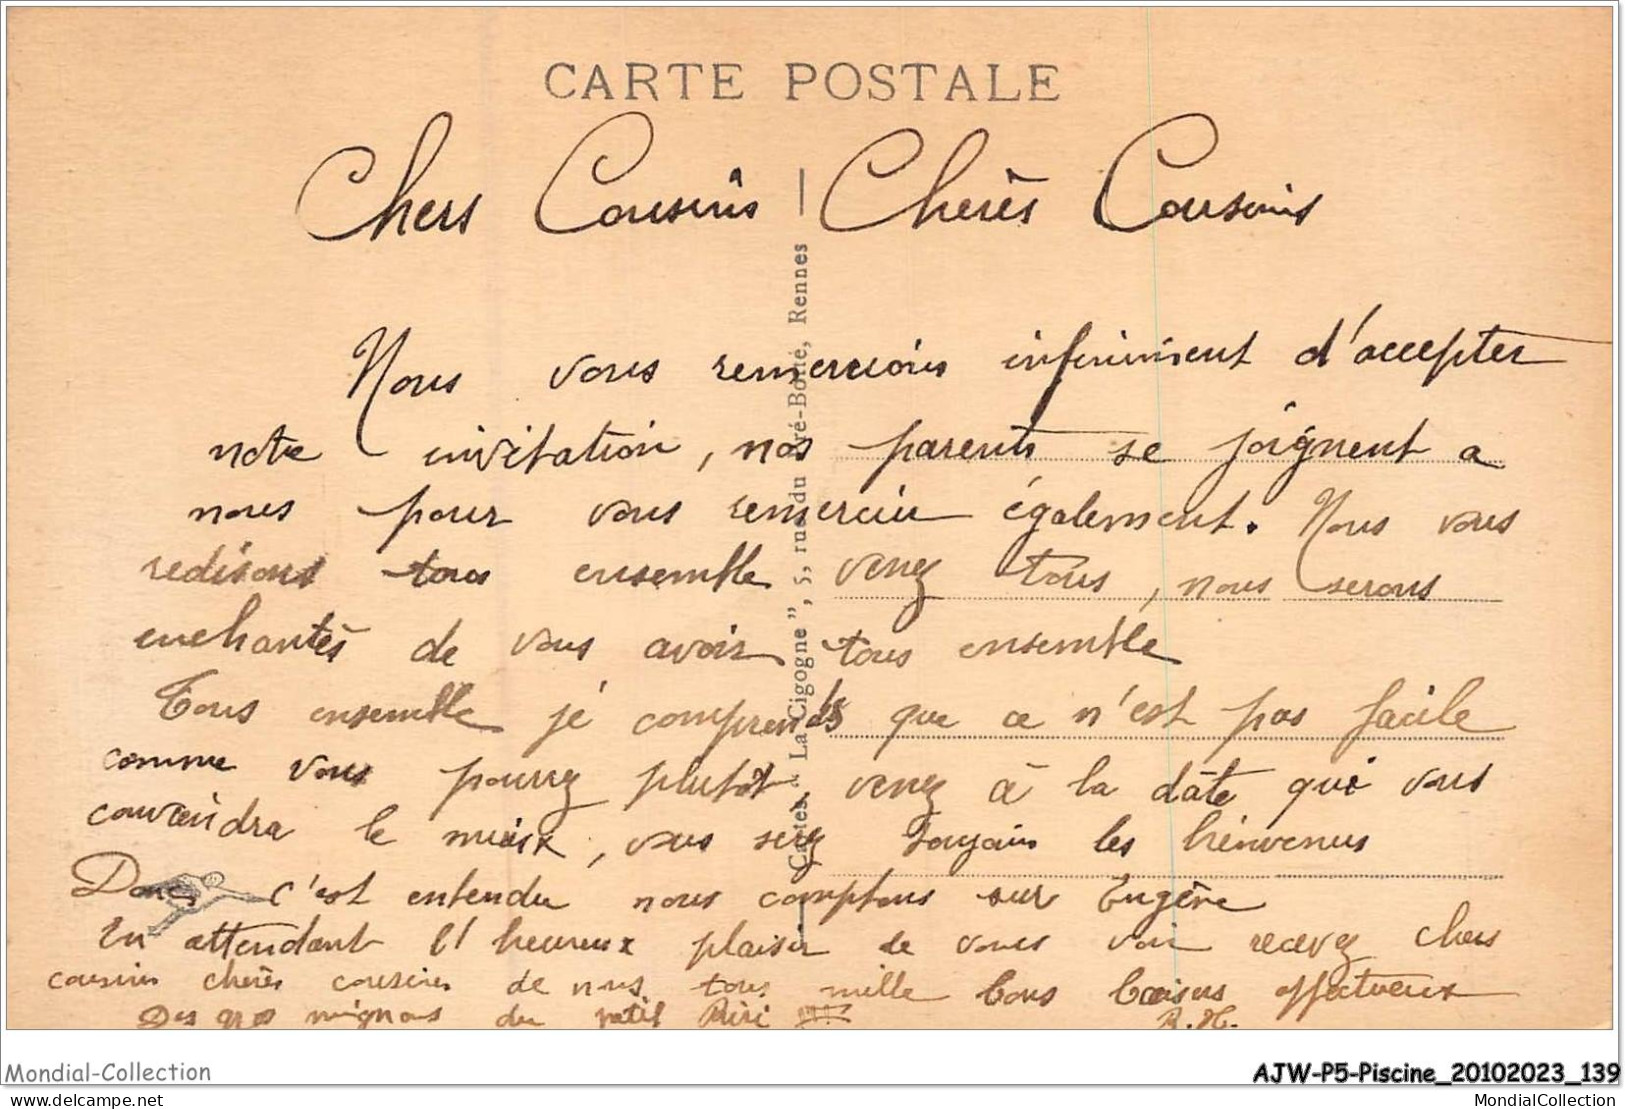 CARTE POSTALE
Chers Cousins Cherès Cousins
Cartes " La Cigogne ", 5, rue du Pré-Botté, Rennes
Nous vous remercions infiniment d'accepter
notre invitation, nos parents se joignent a
nous pour vous remercier également. Nous vous
redisons tous ensemble venez tous, nous serons
enchantés de vous avoir tous ensemble
Tous ensemble je comprends que ce n'est pas facile
comme vous pourrez plutot venez à la date qui vous
conviendra le mieux, vous serez toujours les bienvenus
Donc c'est entendu nous comptons sur Eugène
En attendant l'heureux plaisir de vous voir recevez chers
cousins cherès cousines de nous tous mille bons baisers affectueux
Des gros mignons du petit Riri
R. H.
Mondial-Collection
AJW-P5-Piscine_20102023_139
delcampe.net
MondialCollection